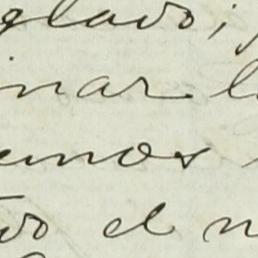 glado;
inar l
emos
do el n